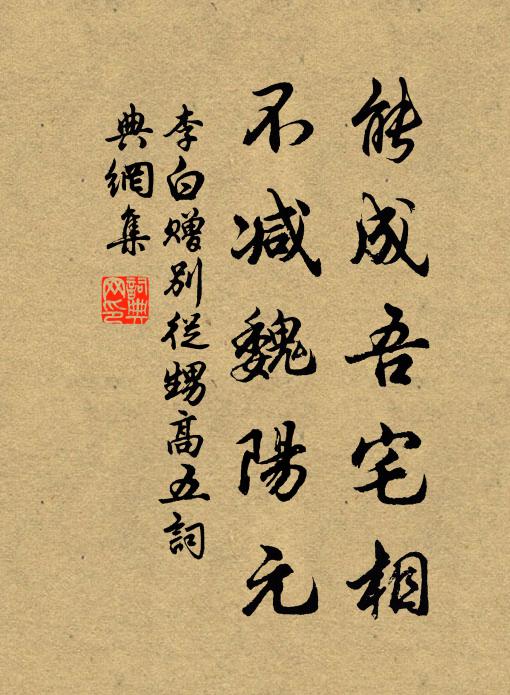 能成吾宅相
不减魏陽元
李白贈別從甥高五詞
典網集
詞典網印